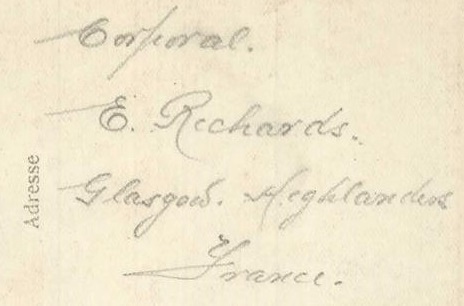 Corporal.
E. Richards.
Glasgow. Highlanders
France.
Adresse